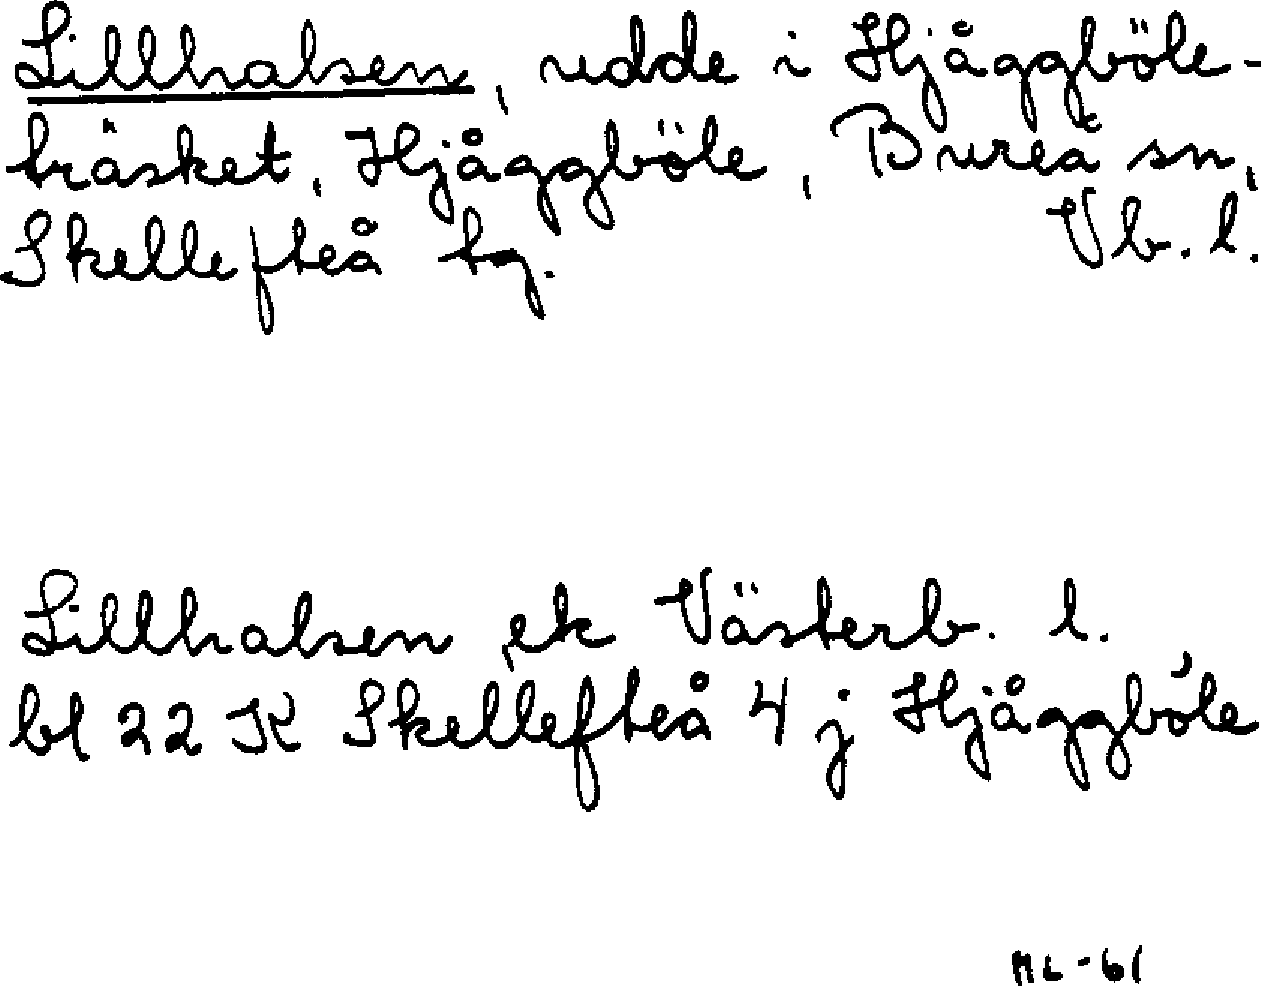 Lillhalsen, udde i Hjåggböle-
träsket, Hjåggböle, Bureå sn,
Skellefteå tg. Vb. l.
Lillhalsen, ek Västerb. l.
bl 22 K Skellefteå 4 j Hjåggböle
ML-61